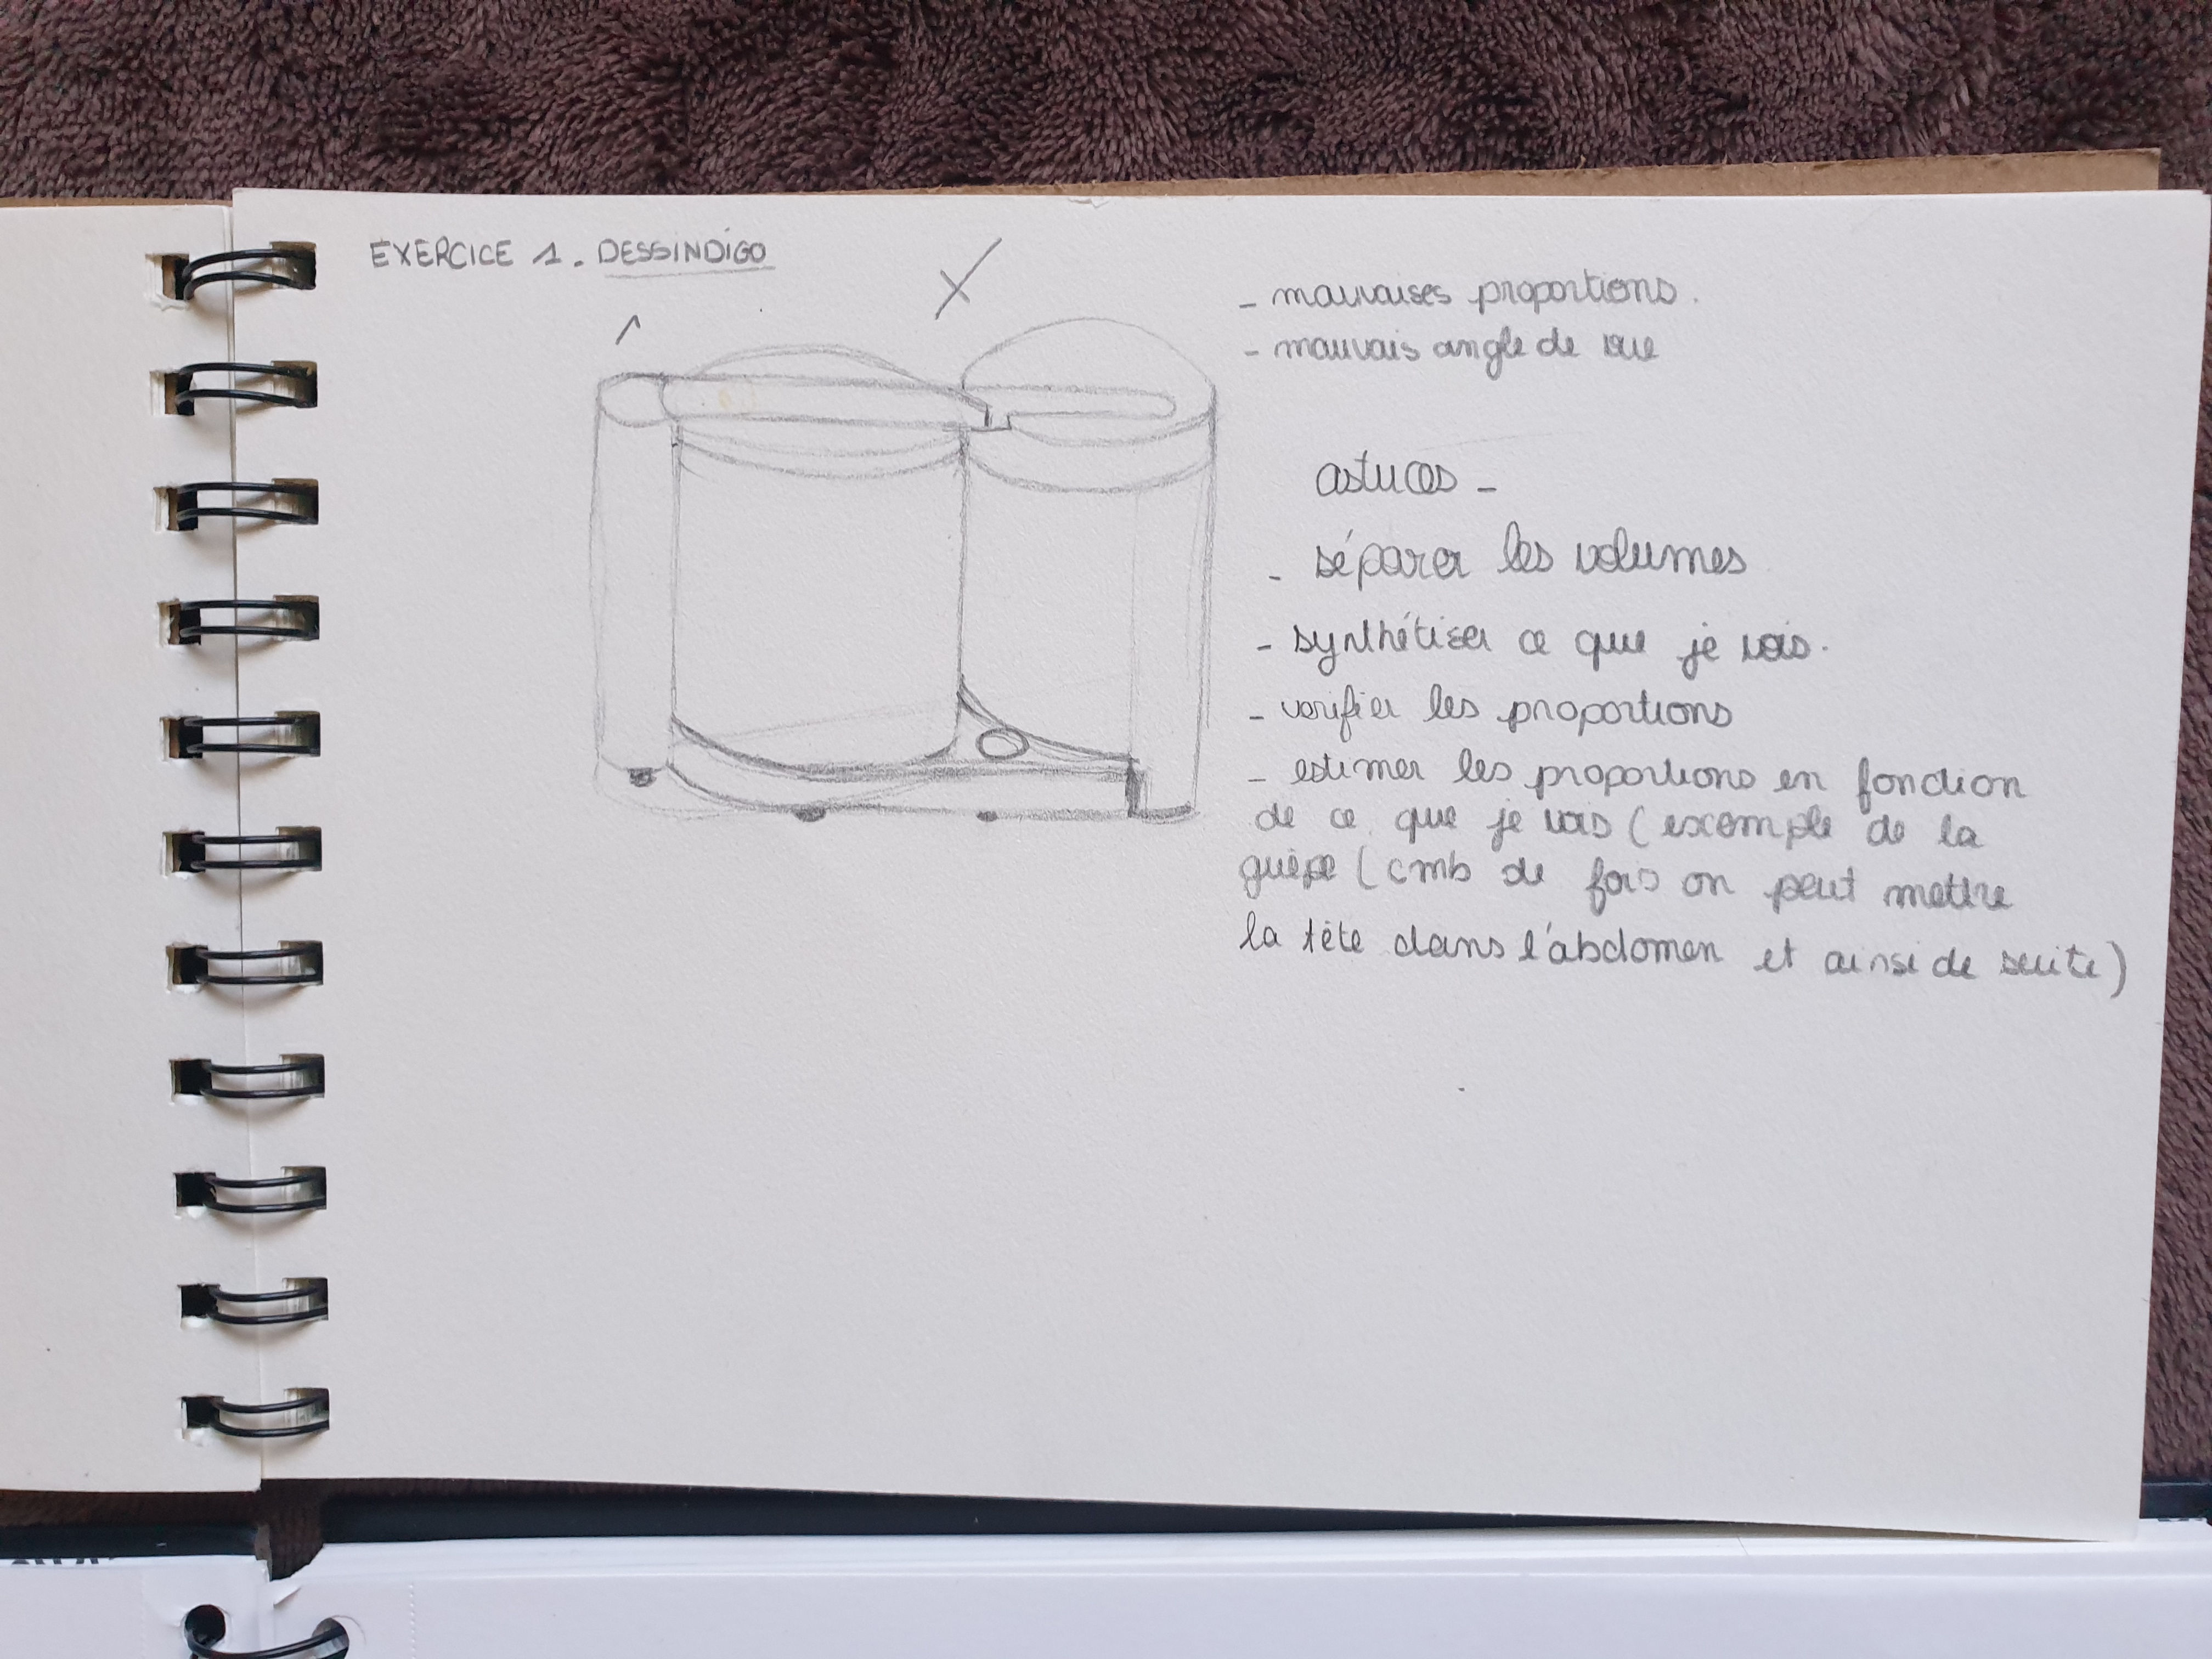 EXERCICE 1. DESSINDIGO
- mauvaises proportions.
- mauvais angle de vue
astuces -
- séparer les volumes
- synthétiser ce que je vois.
- verifier les proportions
- estimer les proportions en fonction
de ce que je vois (exemple de la
guêpe (cmb de fois on peut mettre
la tête dans l'abdomen et ainsi de suite)